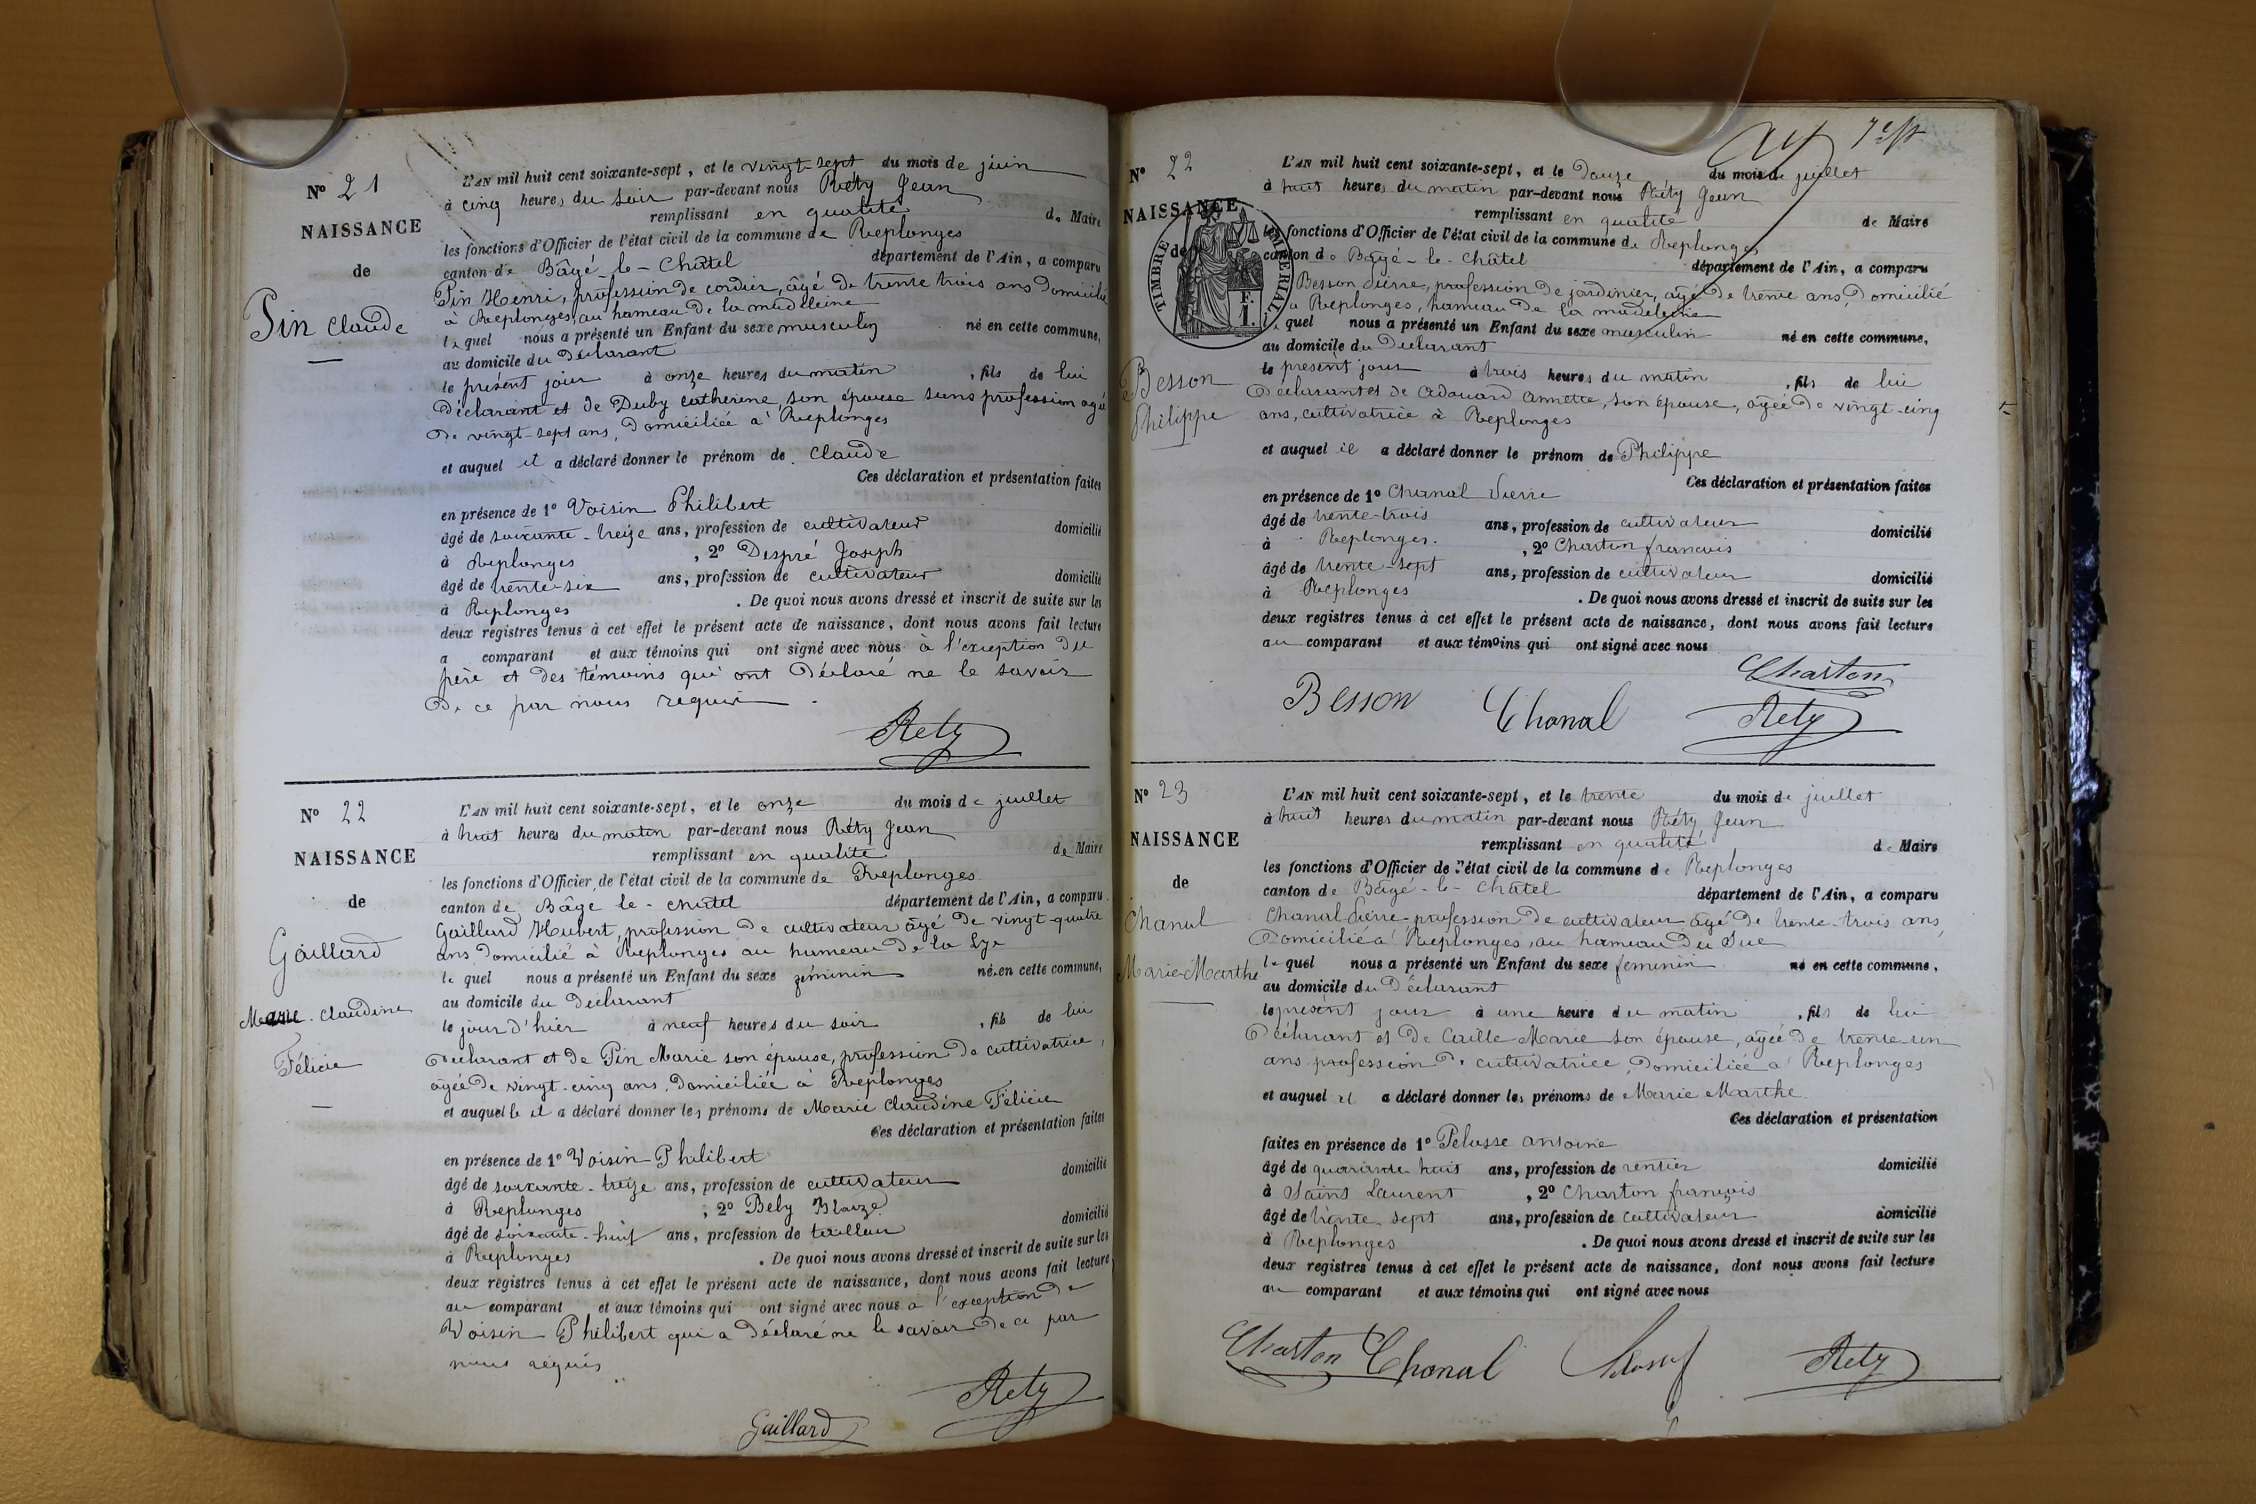 N° 21
NAISSANCE
de
Pin Claude
L'AN mil huit cent soixante-sept, et le vingt-sept du mois de juin
à cinq heures du soir par-devant nous Réty Jean
remplissant en qualité de Maire
les fonctions d'Officier de l'état civil de la commune de Replonges
canton de Bâgé-le-Châtel département de l'Ain, a comparu
Pin Henri, profession de cordier, âgé de trente trois ans domicilié
à Replonges, au hameau de la madeleine
lequel nous a présenté un Enfant du sexe masculin né en cette commune,
au domicile du Déclarant
le présent jour à onze heures du matin, fils de lui
Déclarant et de Duby Catherine, son épouse sans profession agée
de vingt-sept ans, Domiciliée à Replonges
et auquel il a déclaré donner le prénom de Claude
Ces déclaration et présentation faites
en présence de 1° Voisin Philibert
âgé de soixante-treize ans, profession de cultivateur domicilié
à Replonges, 2° Despré Joseph
âgé de trente-six ans, profession de cultivateur domicilié
à Replonges. De quoi nous avons dressé et inscrit de suite sur les
deux registres tenus à cet effet le présent acte de naissance, dont nous avons fait lecture
a comparant et aux témoins qui ont signé avec nous à l'exception du
père et des témoins qui ont Déclaré ne le savoir
De ce par nous requis.
Réty
N° 22
NAISSANCE
de
Gaillard
Marie-Claudine
Félicie
L'AN mil huit cent soixante-sept, et le onze du mois de juillet
à huit heures du matin par-devant nous Réty Jean
remplissant en qualité de Maire
les fonctions d'Officier de l'état civil de la commune de Replonges
canton de Bâge-le-Châtel département de l'Ain, a comparu
Gaillard Hubert, profession de cultivateur âgé de vingt-quatre
ans Domicilié à Replonges au hameau de la
lequel nous a présenté un Enfant du sexe féminin né en cette commune,
au domicile du Déclarant
le jour d'hier à neuf heures du soir, fils de lui
Déclarant et de Pin Marie son épouse, profession de cultivatrice,
âgée de vingt-cinq ans, Domiciliée à Replonges
et auquelle il a déclaré donner les prénoms de Marie Claudine Félicie
Ces déclaration et présentation faites
en présence de 1° Voisin Philibert
âgé de soixante-treize ans, profession de cultivateur domicilié
à Replonges, 2° Bely Blaize
âgé de soixante-huit ans, profession de tailleur domicilié
à Replonges. De quoi nous avons dressé et inscrit de suite sur les
deux registres tenus à cet effet le présent acte de naissance, dont nous avons fait lecture
au comparant et aux témoins qui ont signé avec nous a l'exception de
Voisin Philibert qui a Déclaré ne le savoir De ce par
nous requis.
Réty
Gaillard
7e
N° 22
NAISSANCE
de
TIMBRE IMPERIAL
Besson
Philippe
L'AN mil huit cent soixante-sept, et le Douze du mois de juillet
à huit heures du matin par-devant nous Réty Jean
remplissant en qualité de Maire
les fonctions d'Officier de l'état civil de la commune de Replonges
canton de Bâgé-le-Châtel département de l'Ain, a comparu
Besson Pierre, profession de jardinier, âgé de trente ans, Domicilié
a Replonges, hameau de la madeleine
lequel nous a présenté un Enfant du sexe masculin né en cette commune,
au domicile du Déclarant
le présent jour à trois heures du matin, fils de lui
Déclarant et de Adouard Annette, son épouse, âgée de vingt-cinq
ans, cultivatrice à Replonges
et auquel il a déclaré donner le prénom de Philippe
Ces déclaration et présentation faites
en présence de 1° Chanal Pierre
âgé de trente-trois ans, profession de cultivateur domicilié
à Replonges. , 2° Charton francois
âgé de trente-sept ans, profession de cultivateur domicilié
à Replonges. De quoi nous avons dressé et inscrit de suite sur les
deux registres tenus à cet effet le présent acte de naissance, dont nous avons fait lecture
au comparant et aux témoins qui ont signé avec nous
Charton
Besson Chanal Réty
N° 23
NAISSANCE
de
Chanal
Marie-Marthe
L'AN mil huit cent soixante-sept, et le trente du mois de juillet
à huit heures du matin par-devant nous Réty Jean
remplissant en qualité de Maire
les fonctions d'Officier de l'état civil de la commune de Replonges
canton de Bâgé-le-Châtel département de l'Ain, a comparu
Chanal Pierre profession de cultivateur âgé de trente-trois ans,
Domicilié à Replonges, au hameau du
lequel nous a présenté un Enfant du sexe feminin né en cette commune,
au domicile du Déclarant
le présent jour à une heure du matin, fils de lui
Déclarant et de Caille Marie son épouse, agée de trente-un
ans profession de cultivatrice, Domiciliée à Replonges
et auquel il a déclaré donner les prénoms de Marie Marthe
Ces déclaration et présentation
faites en présence de 1° Pelusse antoine
âgé de quarante-huit ans, profession de rentier domicilié
à Saint Laurent, 2° Charton françois
âgé de trente-sept ans, profession de cultivateur domicilié
à Replonges. De quoi nous avons dressé et inscrit de suite sur les
deux registres tenus à cet effet le présent acte de naissance, dont nous avons fait lecture
au comparant et aux témoins qui ont signé avec nous
Charton Chanal Réty